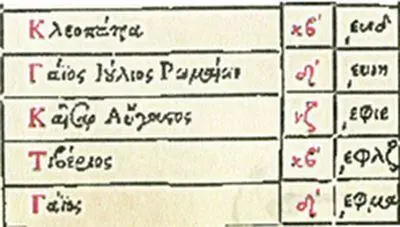 Κλεοπάτρα κβʹ ͵ευνδ
Γάϊος Ἰούλιος Ῥωμαίων δʹ ͵ευνη
Καῖσαρ Αὔγουστος νζ ͵εφιε
Τιβέριος κβʹ ͵εφλζ
Γάϊος δʹ ͵εφμα